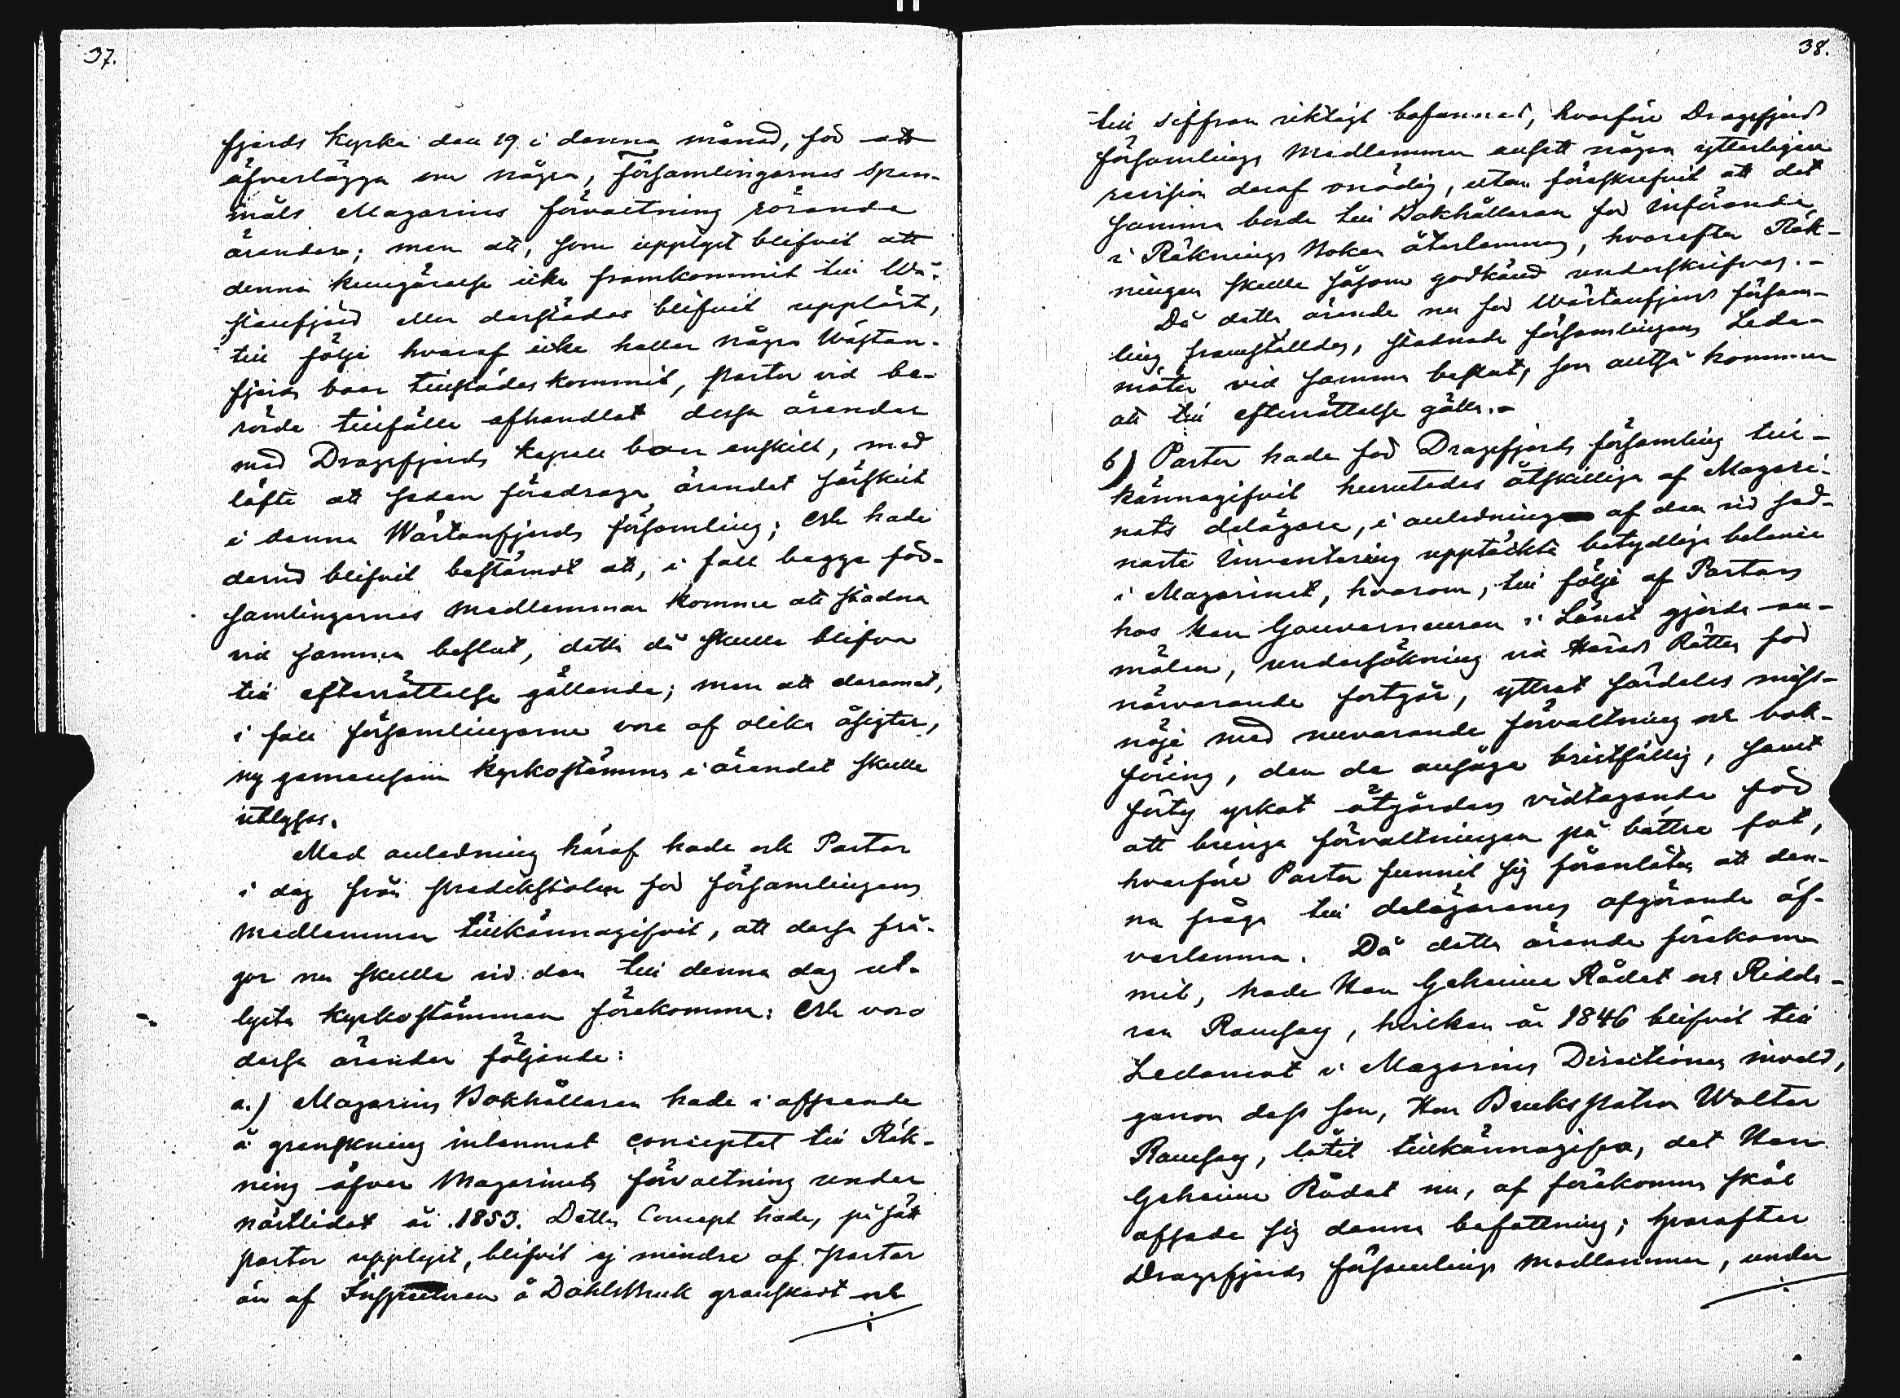 37.
fjerds kyrka den 19 i denna månad, för att
öfverlägga om några, församlingarnes span-
måls Magasins förvaltning rörande
ärender; men att, som upplyst blifvit att
denna kungörelse icke framkommit till Wä-
stanfjerd eller derstädes blifvit uppläst,
till följe hvaraf icke heller några Wästan-
fjerds boar tillstädes kommit, Pastor vid be-
rörde tillfälle afhandlat dessa ärender
med Dragsfjerds Kapell boar enskilt, med
löfte att sedan föredraga ärendet särskilt
i denna Wästanfjerds församling; och hade
dervid blifvit bestämdt att, i fall begge för-
samlingarnes medlemmar komme att stadna
vid samma beslut, detta då skulle blifva
till efterrättelse gällande; men att deremot,
i fall församlingarne vore af olika åsigter,
ny gemensam kyrkostämma i ärendet skulle
utlysas.
Med anledning häraf hade och Pastor
i dag från predikstolen för församlingens
medlemmar tillkännagifvit, att dessa frå-
gor nu skulle vid den till denna dag ut-
lysta kyrkostämman förekomma; och voro
dessa ärender följande:
a.) Magasins Bokhållaren hade i afseende
å granskning inlemnat conceptet till Räk-
ning öfver Magasinets förvaltning under
nästlidet år 1853. Detta Concept hade, på sätt
Pastor upplyst, blifvit ej mindre af Pastor
än af Inspectoren å Dahlsbruk granskadt och
38.
till siffran riktigt befunnet, hvarföre Dragsfjerds
församlings Medlemmar ansett någon ytterligare
revision deraf onödig, utan föreskrifvit att det
samma borde till Bokhållaren för införande
i Räknings Boken återlemnas, hvarefter Räk-
ningen skulle såsom godkänd underskrifvas.-
Då detta ärende nu för Wästanfjerds försam-
ling framställdes, stadnade församlingens Leda-
möter vid samma beslut, som alltså kommer
att till efterrättelse gälla.-
b) Pastor hade för Dragsfjerds församling till-
kännagifvit hurutedes åtskillige af Magasi-
nets delägare, i anledning af den vid sed-
naste Inventering upptäckta betydliga balance
i Magasinet, hvarom, till följe af Pastors
hos Herr Gouverneuren i Länet gjorde an-
mälan, undersökning vid Härads Rätten för
närvarande fortgår, yttrat särdeles miss-
nöje med nuvarande förvaltning och bok-
föring, den de ansåge bristfällig, samt
förty yrkat åtgärders vidtagande för
att bringa förvaltningen på bättre fot,
hvarföre Pastor funnit sig föranlåten att den-
na fråga till delägarenes afgörande öf-
verlemna. Då detta ärende förekom-
mit, hade Herr Geheime Rådet och Ridda-
ren Ramsay, hvilken år 1846 blifvit till
Ledamot i Magasins Directionen invald,
genom dess son, Herr Bruks Patron Wolter
Ramsay, låtit tillkännagifva, det Herr
Geheime Rådet nu, af förekomne skäl
afsade sig denna befattning; hvarefter
Dragsfjerds församlings medlemmar, under